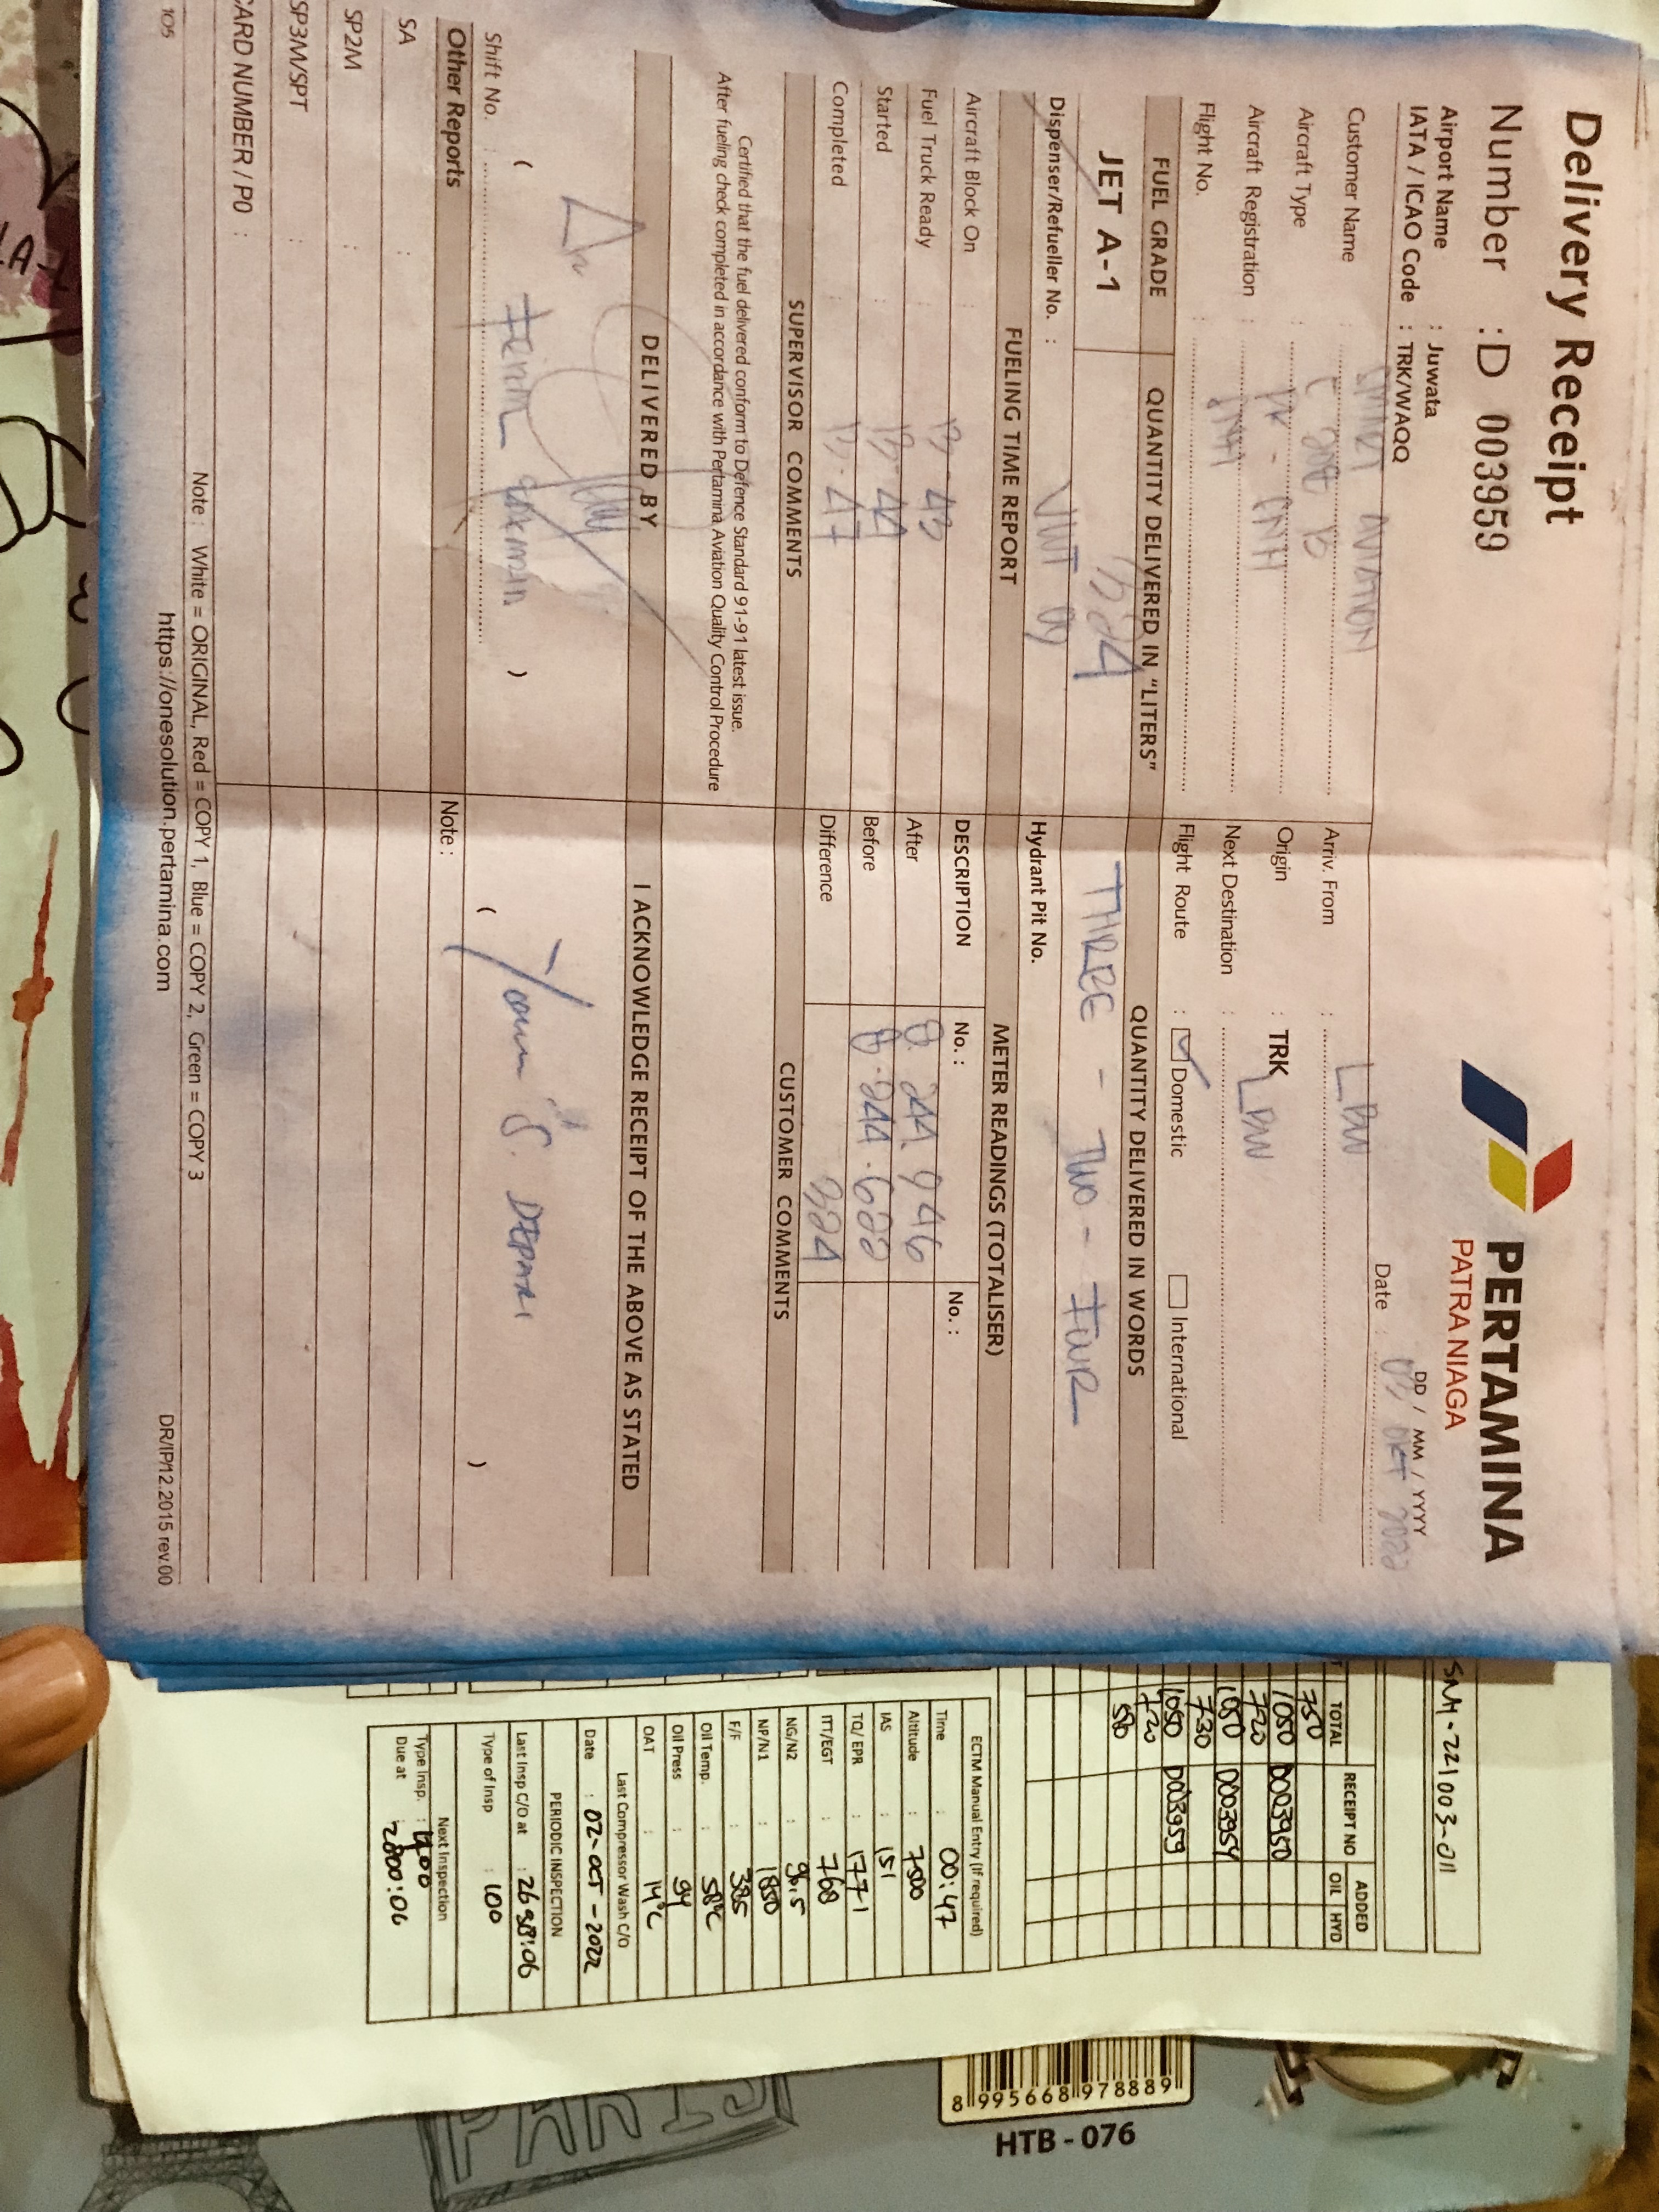 Delivery Receipt
Number : D 0039959
PERTAMINA
PATRA NIAGA
Airport Name : Juwata
IATA / ICAO Code : TRK/WAQQ
DD / MM / YYYY
Date : 03 OKT 2022
Customer Name : SMART AVIATION
Arriv. From : LBW
Aircraft Type :
Origin : TRK
Aircraft Registration : PK - SNH
Next Destination : LBW
Flight No. : SNH
Flight Route : Domestic International
FUEL GRADE QUANTITY DELIVERED IN "LITERS" QUANTITY DELIVERED IN WORDS
JET A-1 324 THREE - TWO - FOUR
Dispenser/Refueller No. : VWT 09 Hydrant Pit No.
FUELING TIME REPORT METER READINGS (TOTALISER)
Aircraft Block On : DESCRIPTION No. : No. :
Fuel Truck Ready : 13 - 43 After 8. 244 946
Started : 13 - 44 Before 8 . 244 . 622
Completed : 13 - 47 Difference 324
SUPERVISOR COMMENTS CUSTOMER COMMENTS
Certified that the fuel delivered conform to Defence Standard 91-91 latest issue.
After fueling check completed in accordance with Pertamina Aviation Quality Control Procedure
DELIVERED BY I ACKNOWLEDGE RECEIPT OF THE ABOVE AS STATED
( ) ( S. DEPARI )
Shift No. :
Other Reports Note :
SA :
SP2M :
SP3M/SPT :
CARD NUMBER / PO :
Note : White = ORIGINAL, Red = COPY 1, Blue = COPY 2, Green = COPY 3
105 https://onesolution.pertamina.com DR/IP/12.2015 rev.00
SNH-221003-011
TOTAL RECEIPT NO ADDED
OIL HYD
750
1050 D003950
720
1050 D003954
730
1050 D003959
720
580
ECTM Manual Entry (If required)
Time : 00:47
Altitude : 7500
IAS : 151
TQ/ EPR : 1771
ITT/EGT : 768
NG/N2 : 96.5
NP/N1 : 1850
F/F : 385
Oil Temp. : 58°C
Oil Press : 94
OAT : 14°C
Last Compressor Wash C/O
Date : 02-OCT-2022
PERIODIC INSPECTION
Last Insp C/O at : 2698:06
Type of Insp : 100
Next Inspection
Type Insp. :
Due at : 2800:06
8 995668 978889
HTB - 076
PARIS